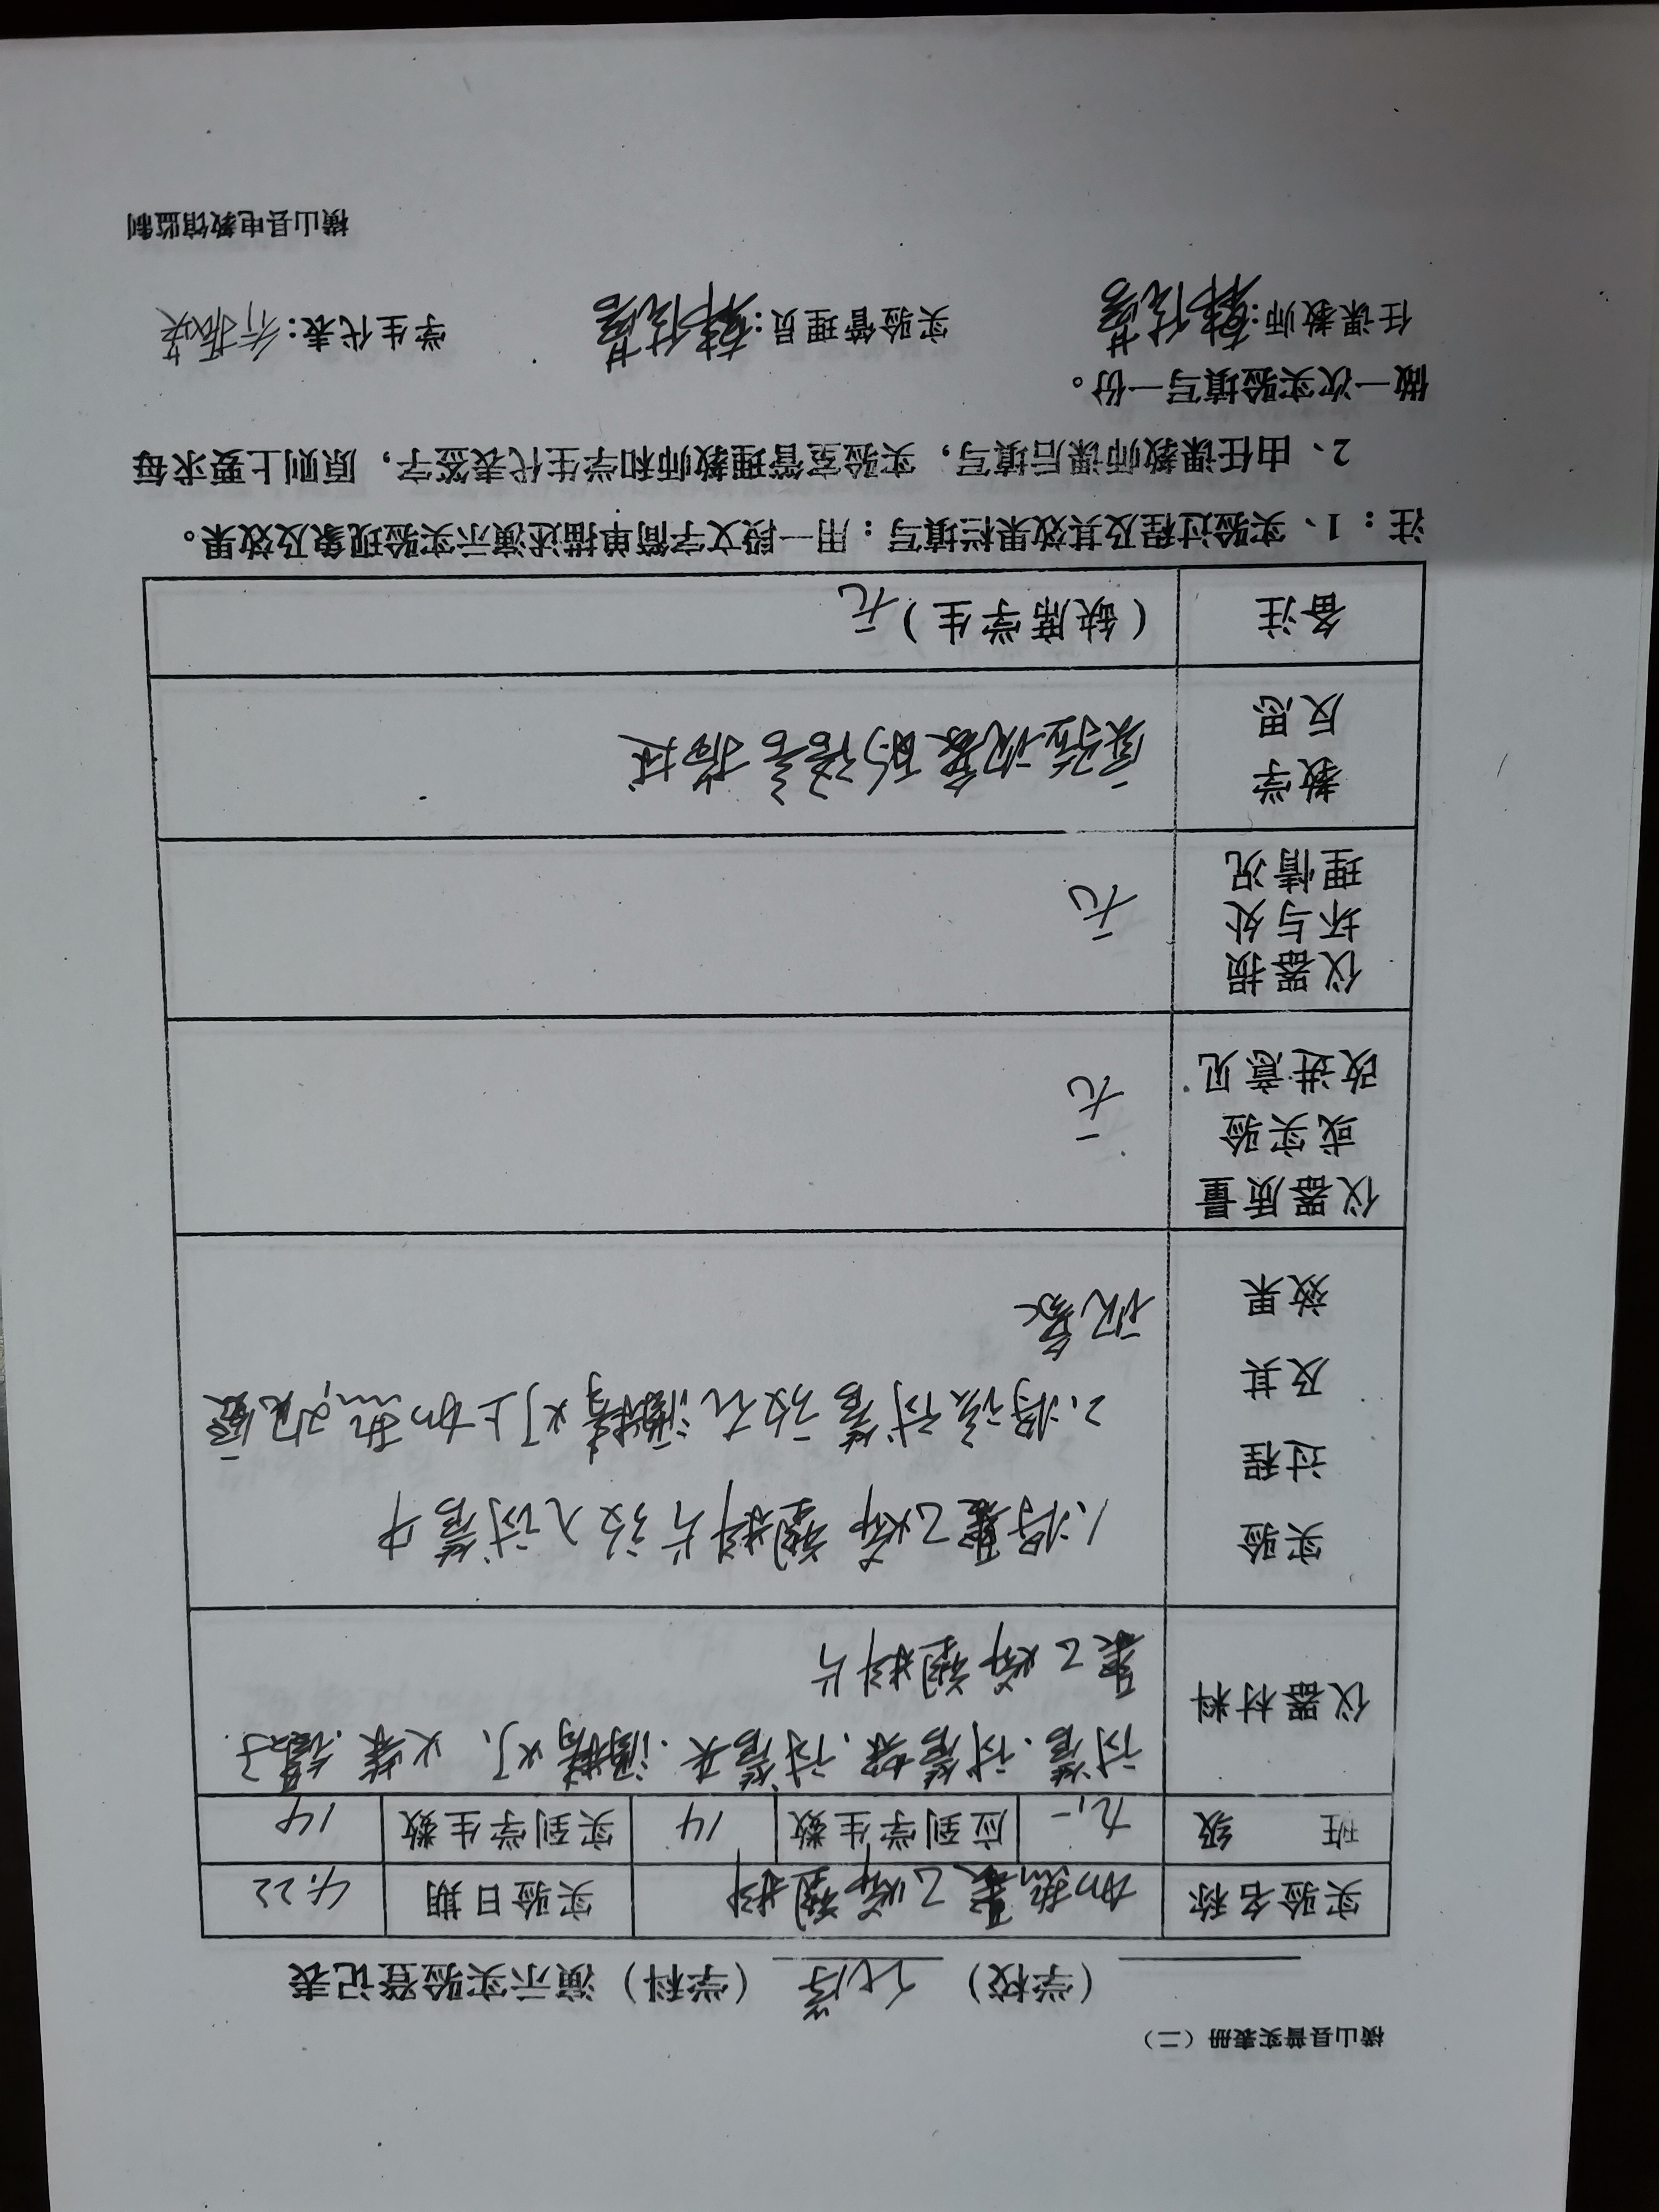 横山县普实表册（二）
（学校） 化学 （学科）演示实验登记表
实验名称 加热聚乙烯塑料 实验日期 4.22
班 级 九.一 应到学生数 14 实到学生数 14
仪器材料
试管.试管架.试管夹.酒精灯、火柴.镊子
聚乙烯塑料片
实验
过程
及其
效果
1.将聚乙烯塑料片放入试管中
2.将该试管放在酒精灯上加热,观察
现象
仪器质量
或实验
改进意见
无
仪器损
坏与处
理情况
无
教学
反思
实验现象的语言描述
备注 （缺席学生）无
注：1、实验过程及其效果栏填写：用一段文字简单描述演示实验现象及效果。
2、由任课教师课后填写，实验室管理教师和学生代表签字，原则上要求每
做一次实验填写一份。
任课教师: 实验管理员: 学生代表:
横山县电教馆监制